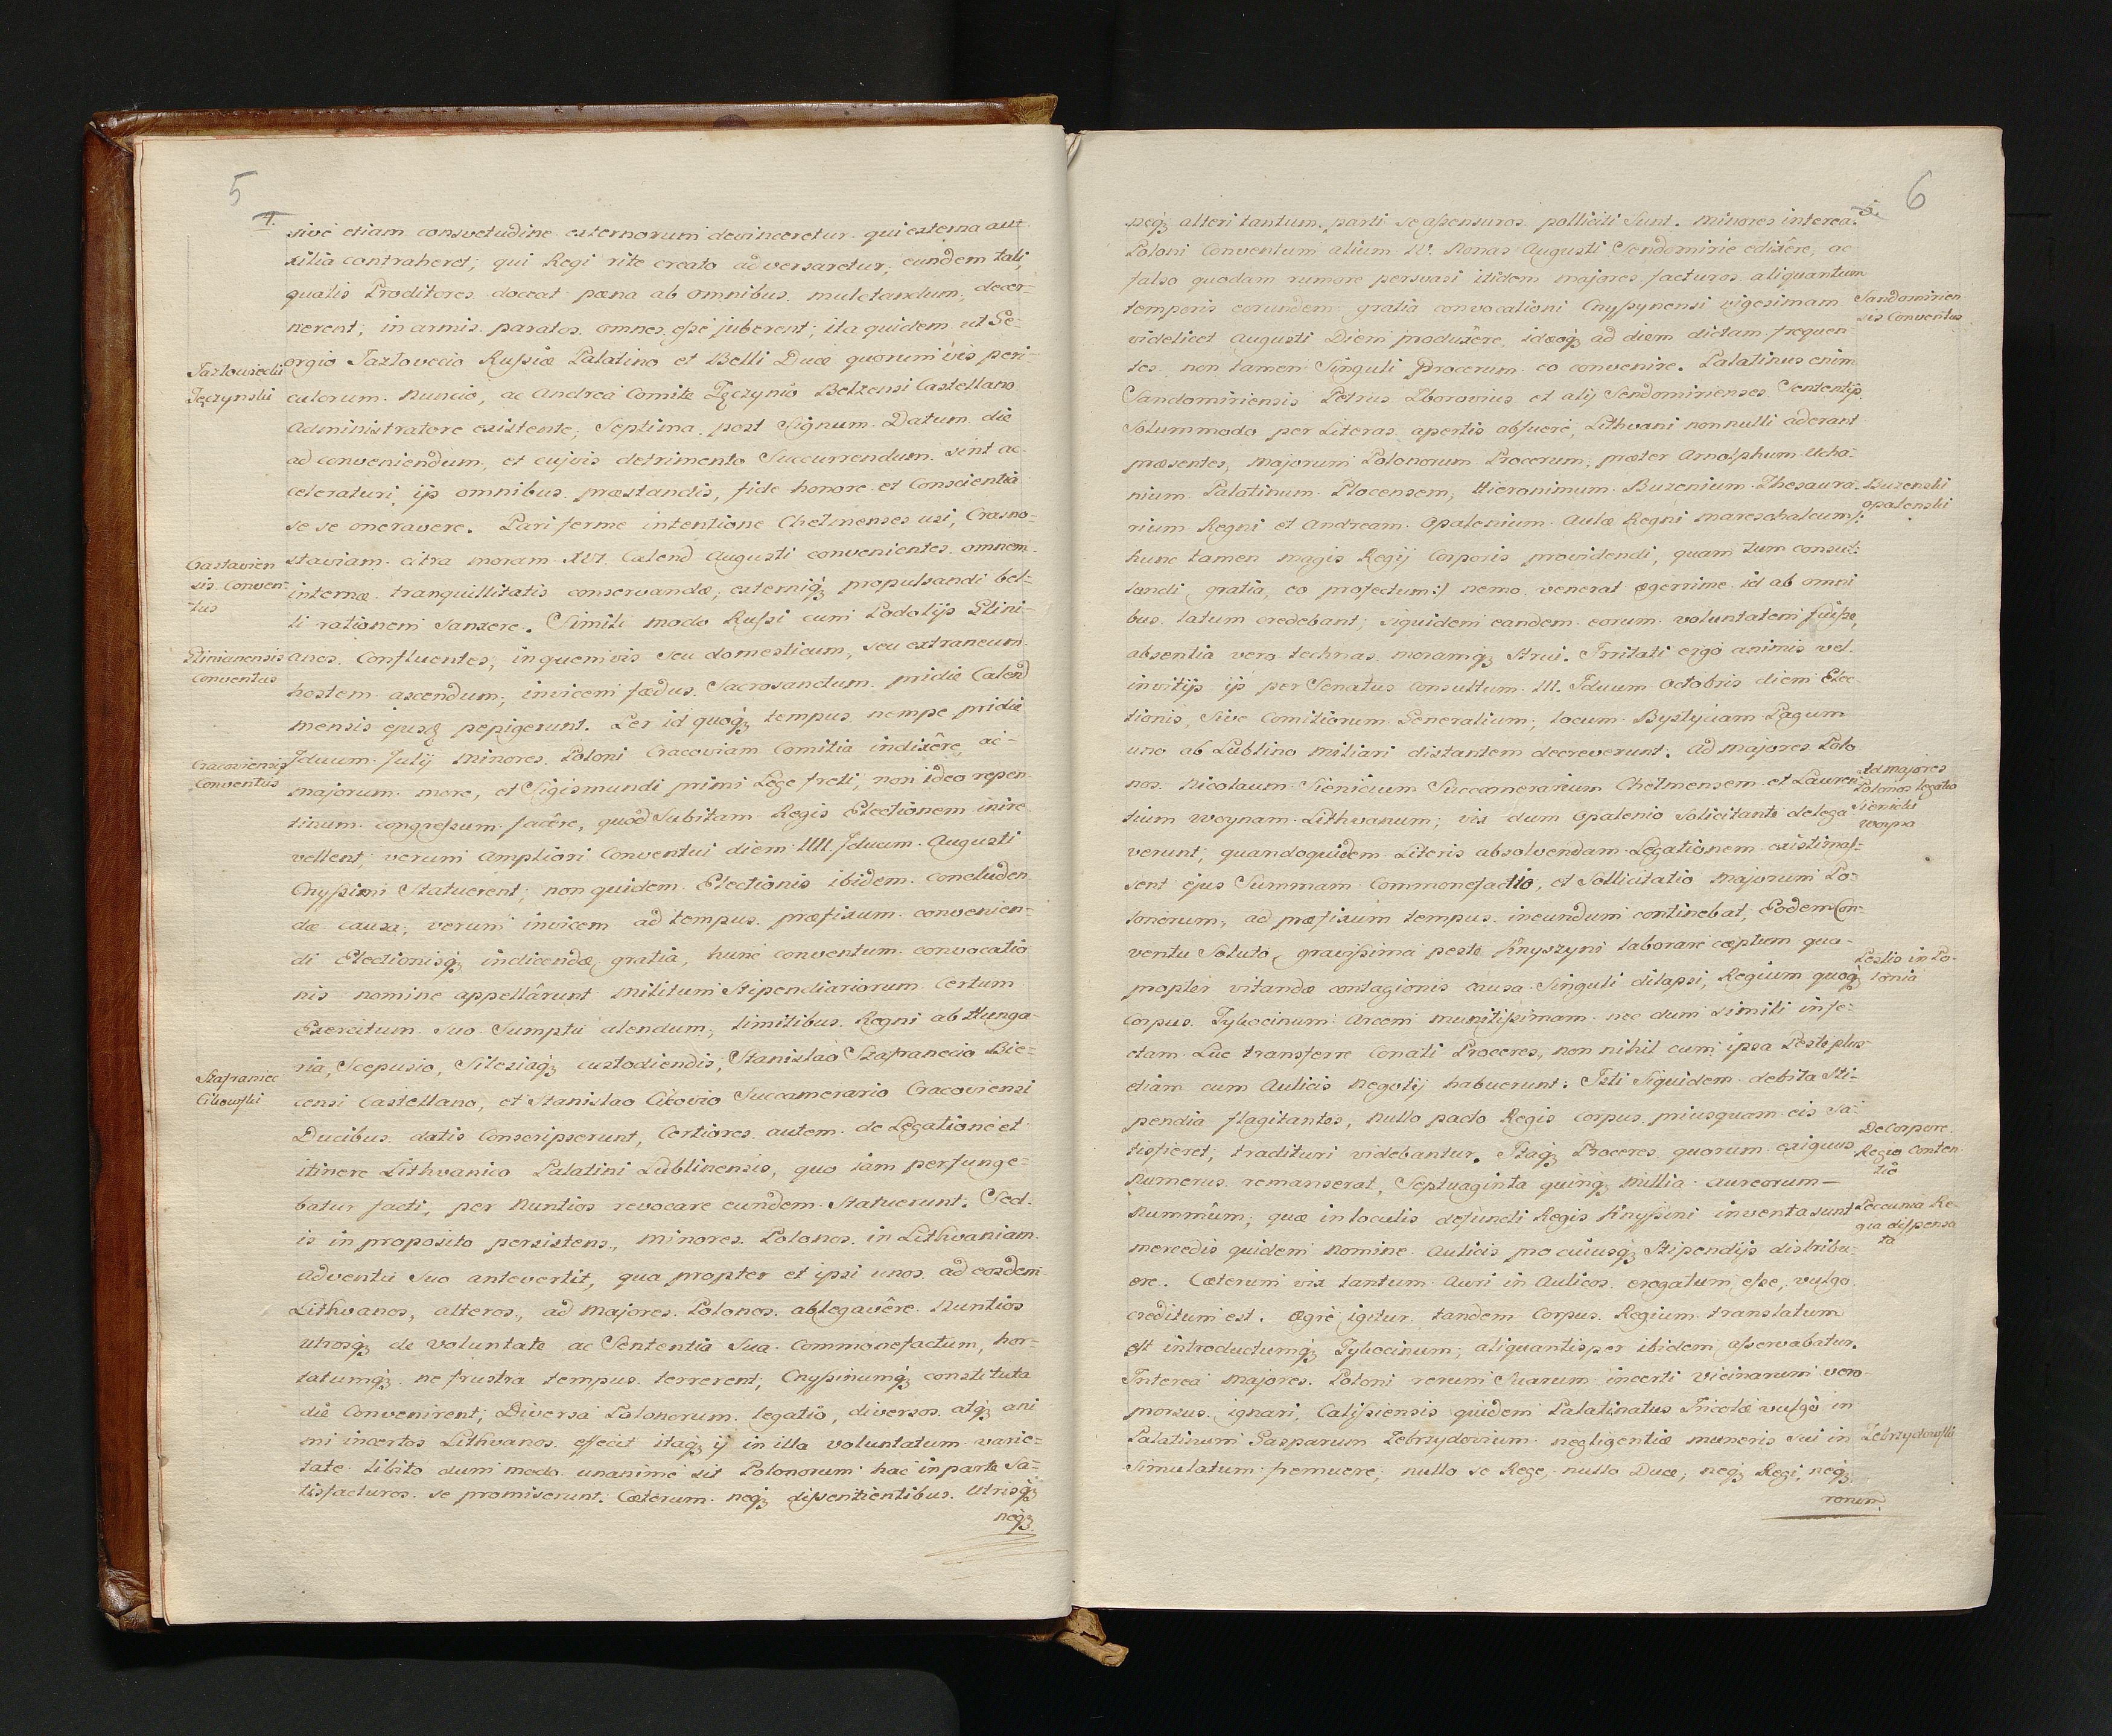 5
4.
sive etiam consvetudine externorum devinceretur qui externa au-
xilia contraheret; qui Regi rite creato adversaretur, eundem tali,
qualis Proditores doceat pœna ab omnibus mulctandum, decer-
nerent; in armis paratos omnes eße juberent; ita quidem ut Ge-
orgio Jazlovecio Rußiæ Palatino et Belli Duce quorumvis peri-
culorum Nuncio, ac Andrea Comite Tęczynio Belzensi Castellano
Administratore existente; Septima post Signum Datum die
ad conveniendum, et cujvis detrimento Succurrendum sint ac-
celeraturi, ijs omnibus præstandis, fide honore et Conscientia
se se oneravere. Pari ferme intentione Chelmenses usi, Crasno-
staviam citra moram XVI. Calend Augusti convenientes omnem
internæ tranquillitatis conservandæ, externiq3 propulsandi bel-
li rationem sanxere. Simili modo Rußi cum Podolijs Glini-
anos Confluentes, in quemvis seu domesticum, seu extraneum
hostem ascendum, invicem fœdus Sacrosanctum pridie Calend
mensis ejusq3 pepigerunt. Per id quoq3 tempus nempe pridie
Jduum Julij Minores Poloni Cracoviam Comitia indixêre, ac
majorum more, et Sigismundi primi Lege freti, non ideo repen-
tinum congreßum facêre, quod Subitam Regis Electionem inire
vellent; verum Ampliori Conventui diem IIII Jduum Augusti
Cnyßini Statuerent; non quidem Electionis ibidem concluden
dæ causa, verum invicem ad tempus præfixum convenien-
di Electionisq3 indicendæ gratia, hunc conventum convocatio
nis nomine appellârunt Militum Stipendiariorum Certum
Exercitum suo Sumptu alendum, limitibus Regni ab Hunga-
ria, Scepusio, Silesiaq3 custodiendis, Stanislao Szafranecio Bie-
censi Castellano, et Stanislao Cikovio Succamerario Cracoviensi
Ducibus datis Conscripserunt, Certiores autem de Legatione et
itinere Lithvanico Palatini Lublinensis, quo iam perfunge-
batur facti, per Nuntios revocare eundem Statuerunt. Sed
is in proposito persistens, Minores Polonos in Lithvaniam
adventu Suo antevertit, qua propter et ipsi unos ad eosdem
Lithvanos, alteros, ad Majores Polonos ablegavêre Nuntios
utrosq3 de voluntate ac Sententia Sua Commonefactum, hor-
tatumq3 ne frustra tempus tererent, Cnyßinumq3 constituta
die Convenirent; Diversa Polonorum legatio, diversos atq3 ani
mi incertos Lithvanos effecit itaq3 ij in illa voluntatum varie-
tate libito dum modo unanime sit Polonorum hac in parte Sa-
tisfacturos se promiserunt. Cæterum neq3 dißentientibus Utrisq3
neq3
Jazlowiecki
Tęczynski
Crastavien
sis Conven-
tus
Glinianensis
Conventus
Cracoviensis
Conventus
Szafraniec
Cikowski
6
5.
neq3 alteri tantum parti se aßensuros polliciti Sunt. Minores interea
Poloni Conventum alium IV. Nonas Augusti Sendomirie edixêre, ac
falso quodam rumore persuasi itidem majores facturos aliquantum
temporis eorundem gratia convocationi Cnyßynensi vigesimam
videlicet Augusti Diem produxêre, ideoq3 ad diem dictam frequen
tes non tamen Singuli Procerum eo convenire. Palatinus enim
Sandomiriensis Petrus Zborovius et alij Sendomirienses Sententijs
Solummodo per Literas apertis abfuere, Lithvani nonnulli aderant
præsentes, Majorum Polonorum Procerum, præter Arnolphum Ucha-
nium Palatinum Plocensem, Hieronimum Buzenium Thesaura-
rium Regni et Andream Opalenium Aulæ Regni mareschalcum /:
hunc tamen magis Regij Corporis providendi, quam tum consul-
tandi gratia, eo profectum :/ nemo venerat ægerrime id ab omni
bus latum credebant; siquidem eandem eorum voluntatem fuiße,
absentia vero technas moramq3 strui. Irritati ergo animis vel
invitijs ijs per Senatus Consultum III. Jduum Octobris diem Elec-
tionis, Sive Comitiorum Generalium; locum Bystyciam Pagum
uno ab Lublino miliari distantem decreverunt. Ad majores Polo
nos Nicolaum Sienicium Succamerarium Chelmensem et Lauren
tium Woynam Lithvanum; vix dum Opalenio Solicitante delega
verunt, quandoquidem Literis absolvendam Legationem existimaß-
sent ejus Summam Commonefactio, et Sollicitatio Majorum Po-
lonorum, ad præfixum tempus ineundum continebat, Eodem Con-
ventu Soluto, gravißima peste Knyszyni laborari cæptum qua-
propter vitandæ contagionis causa Singuli dilapsi, Regium quoq3
corpus Tykocinum Arcem munitißimam nec dum simili infe-
ctam Lue transferre Conati Proceres, non nihil cum ipsa Peste plus
etiam cum Aulicis negotij habuerunt. Isti Siquidem debita Sti-
pendia flagitantes, nullo pacto Regis Corpus priusquam eis sa-
tisfieret; tradituri videbantur. Itaq3 Proceres quorum exiguus
Numerus remanserat, Septuaginta quinq3 millia aureorum —
Nummûm; quæ in loculis defuncti Regis Knyßini inventa sunt
mercedis quidem nomine Aulicis pro cuiusq3 Stipendijs distribu-
ere. Cæterum vix tantum Auri in Aulicos erogatum eße, vulgo
creditum est. Ægre igitur tandem Corpus Regium translatum
est introductumq3 Tykocinum; aliquantisper ibidem aßervabatur.
Interea majores Poloni rerum Suarum incerti vicinarum vero
prorsus ignari, Calißiensis quidem Palatinatus Incolæ vulgo in
Palatinum Gasparum Zebrzydovium negligentiæ muneris sui in
Simulatum fremuere; nullo se Rege, nullo Duce, neq3 Regi, neq3
rerum
Sandomirien
sis Conventus
Buzenski
Opalenski
Ad majores
Polonos legatio
Sienicki
Woyna
Pestis in Po-
lonia
De Corpore
Regio Conten
tio
Pecunia Re-
gia dispensa
ta
Zebrzydowski